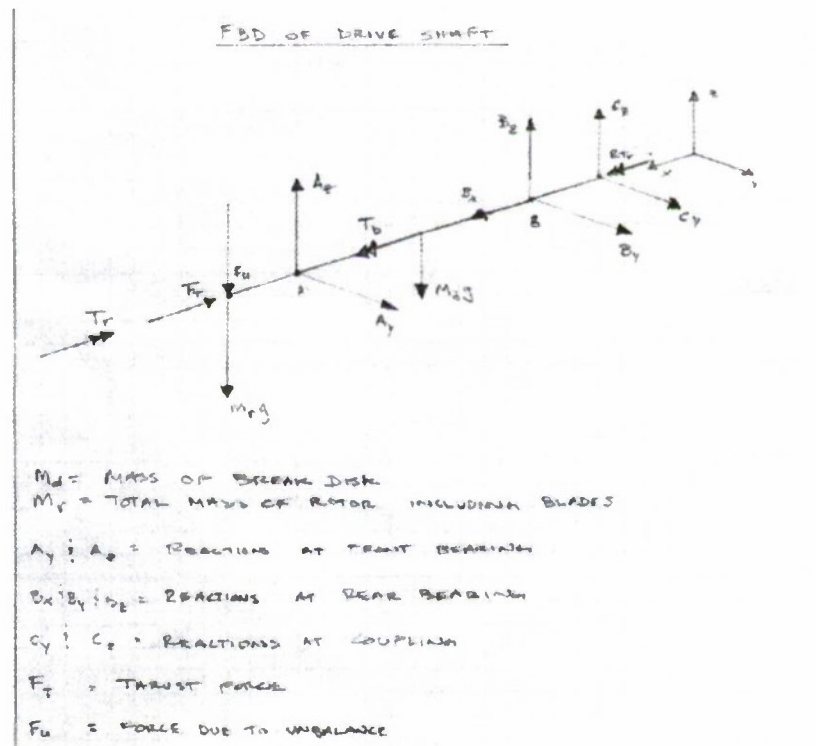 FBD OF DRIVE SHAFT
Bz
Cz
z
Az
Bx
x
Tb
B
Cy
By
Fu
A
Mdg
Tr
Ay
Mrg
Md = MASS OF BREAK DISK
Mr = TOTAL MASS OF ROTOR INCLUDING BLADES
Ay ; Az = REACTIONS AT FRONT BEARING
Bx ; By ; Bz = REACTIONS AT REAR BEARING
Cy ; Cz = REACTIONS AT COUPLING
FT = THRUST FORCE
Fu = FORCE DUE TO UNBALANCE